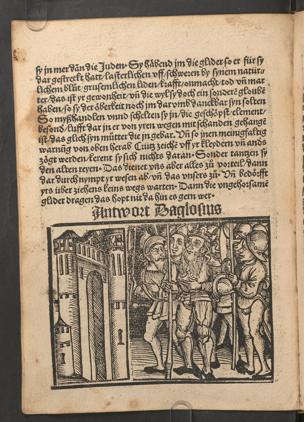 sy jn mer dañ die Juden· Sy habend jm die glider so er für sy
dar gestreckt hatt/lasterlichen uff schweren by synem natür
lichen blůt/grusenlichen liden/krafft/onmacht/tod vñ mar
ter/das ist yr gewonheit· vñ die wyl sy doch ein sondere gloubē
haben/so sy der oberkeit noch jm darumb danckbar syn solten
So mysshandlen vnnd schelten sy jn/die geschöpfft element
besond lufft dar in er von yren wegen mit schanden gehangē
ist/das glich syn můtter die jn gebar· Vñ so jnen meingfaltig
warnūg von oben herab Crütz zeichē vff yr kleydern vñ ands
zögt werden/kerent sy sich nichts daran· Sonder tantzen jn
den alten reyen· Das dienet vns aber alles zů vorteil/dann
dar durch nympt yr wesen ab/vñ das vnsers zů· Vñ bedörfft
yrs über ziehens keins wegs warten· Dann die vngehorsamē
glider tragen das hopt nit da hin es gern wer·
Antwort Baglosius